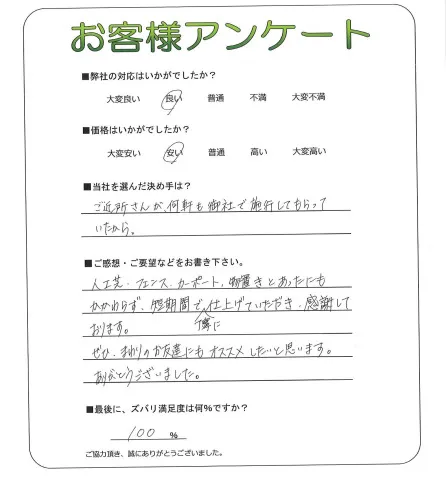 お客様アンケート
■弊社の対応はいかがでしたか?
大変良い 良い 普通 不満 大変不満
■価格はいかがでしたか?
大変安い 安い 普通 高い 大変高い
■当社を選んだ決め手は?
ご近所さんが、何軒も御社で施行してもらって
いたから。
■ご感想・ご要望などをお書き下さい。
人工芝・フェンス・カーポート・物置きとあったにも
かかわらず、短期間で、仕上げていただき、感謝して
おります。
ぜひ、まわりのお友達にもオススメしたいと思います。
ありがとうございました。
■最後に、ズバリ満足度は何%ですか?
100 %
ご協力頂き、誠にありがとうございました。